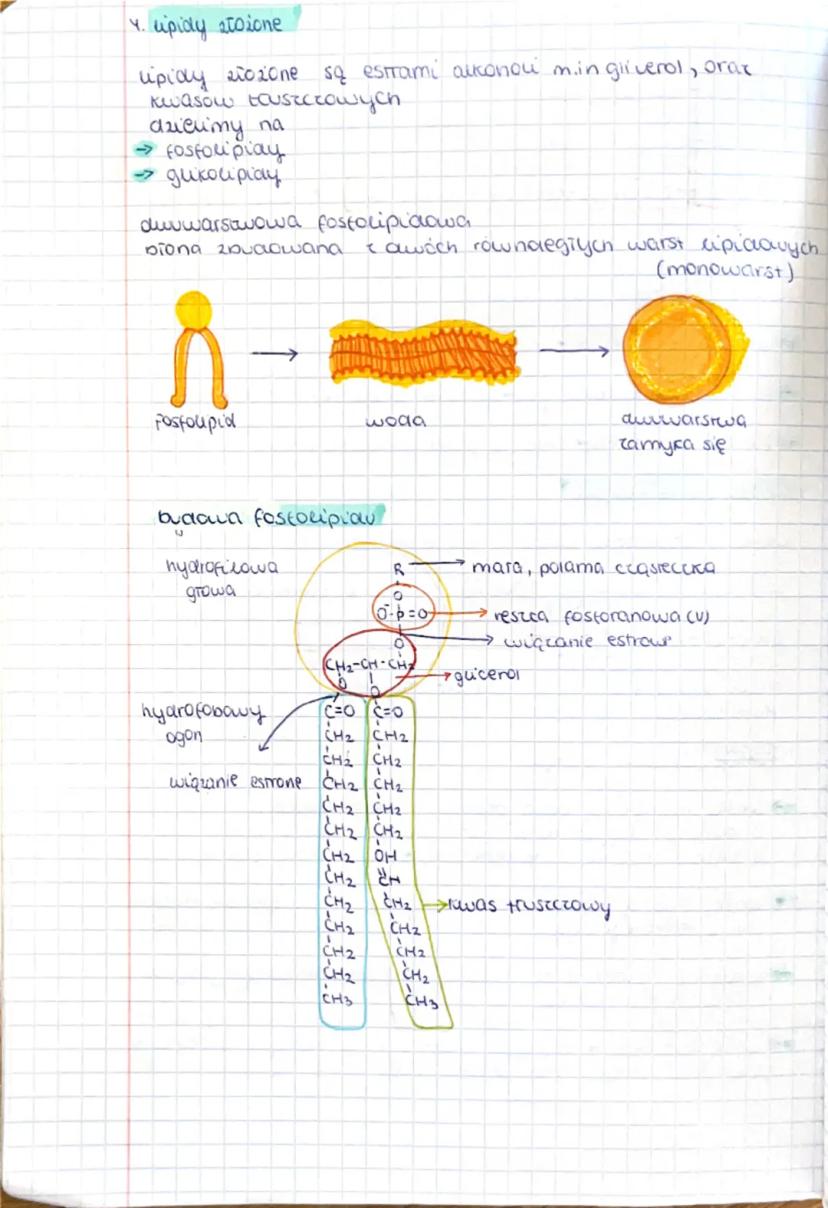 4. lipidy złożone
lipidy złożone są estrami alkoholi m.in glicerol, oraz
kwasów tłuszczowych
dzielimy na
→ fosfolipidy
→ glikolipidy
dwuwarstwowa fosfolipidowa
błona zbudowana z dwóch równoległych warst lipidowych
(monowarst)
fosfolipid
woda
dwuwarstwa
zamyka się
budowa fosfolipidu
hydrofilowa
głowa
R → mała, polarna cząsteczka
O
O⁻-P=O → reszta fosforanowa (V)
O → wiązanie estrowe
CH2-CH-CH2 → glicerol
O O
hydrofobowy
ogon
wiązanie estrowe
C=O C=O
CH2 CH2
CH2 CH2
CH2 CH2
CH2 CH2
CH2 CH2
CH2 OH
CH2 CH
CH2 CH2 → kwas tłuszczowy
CH2 CH2
CH2 CH2
CH2 CH2
CH3 CH3